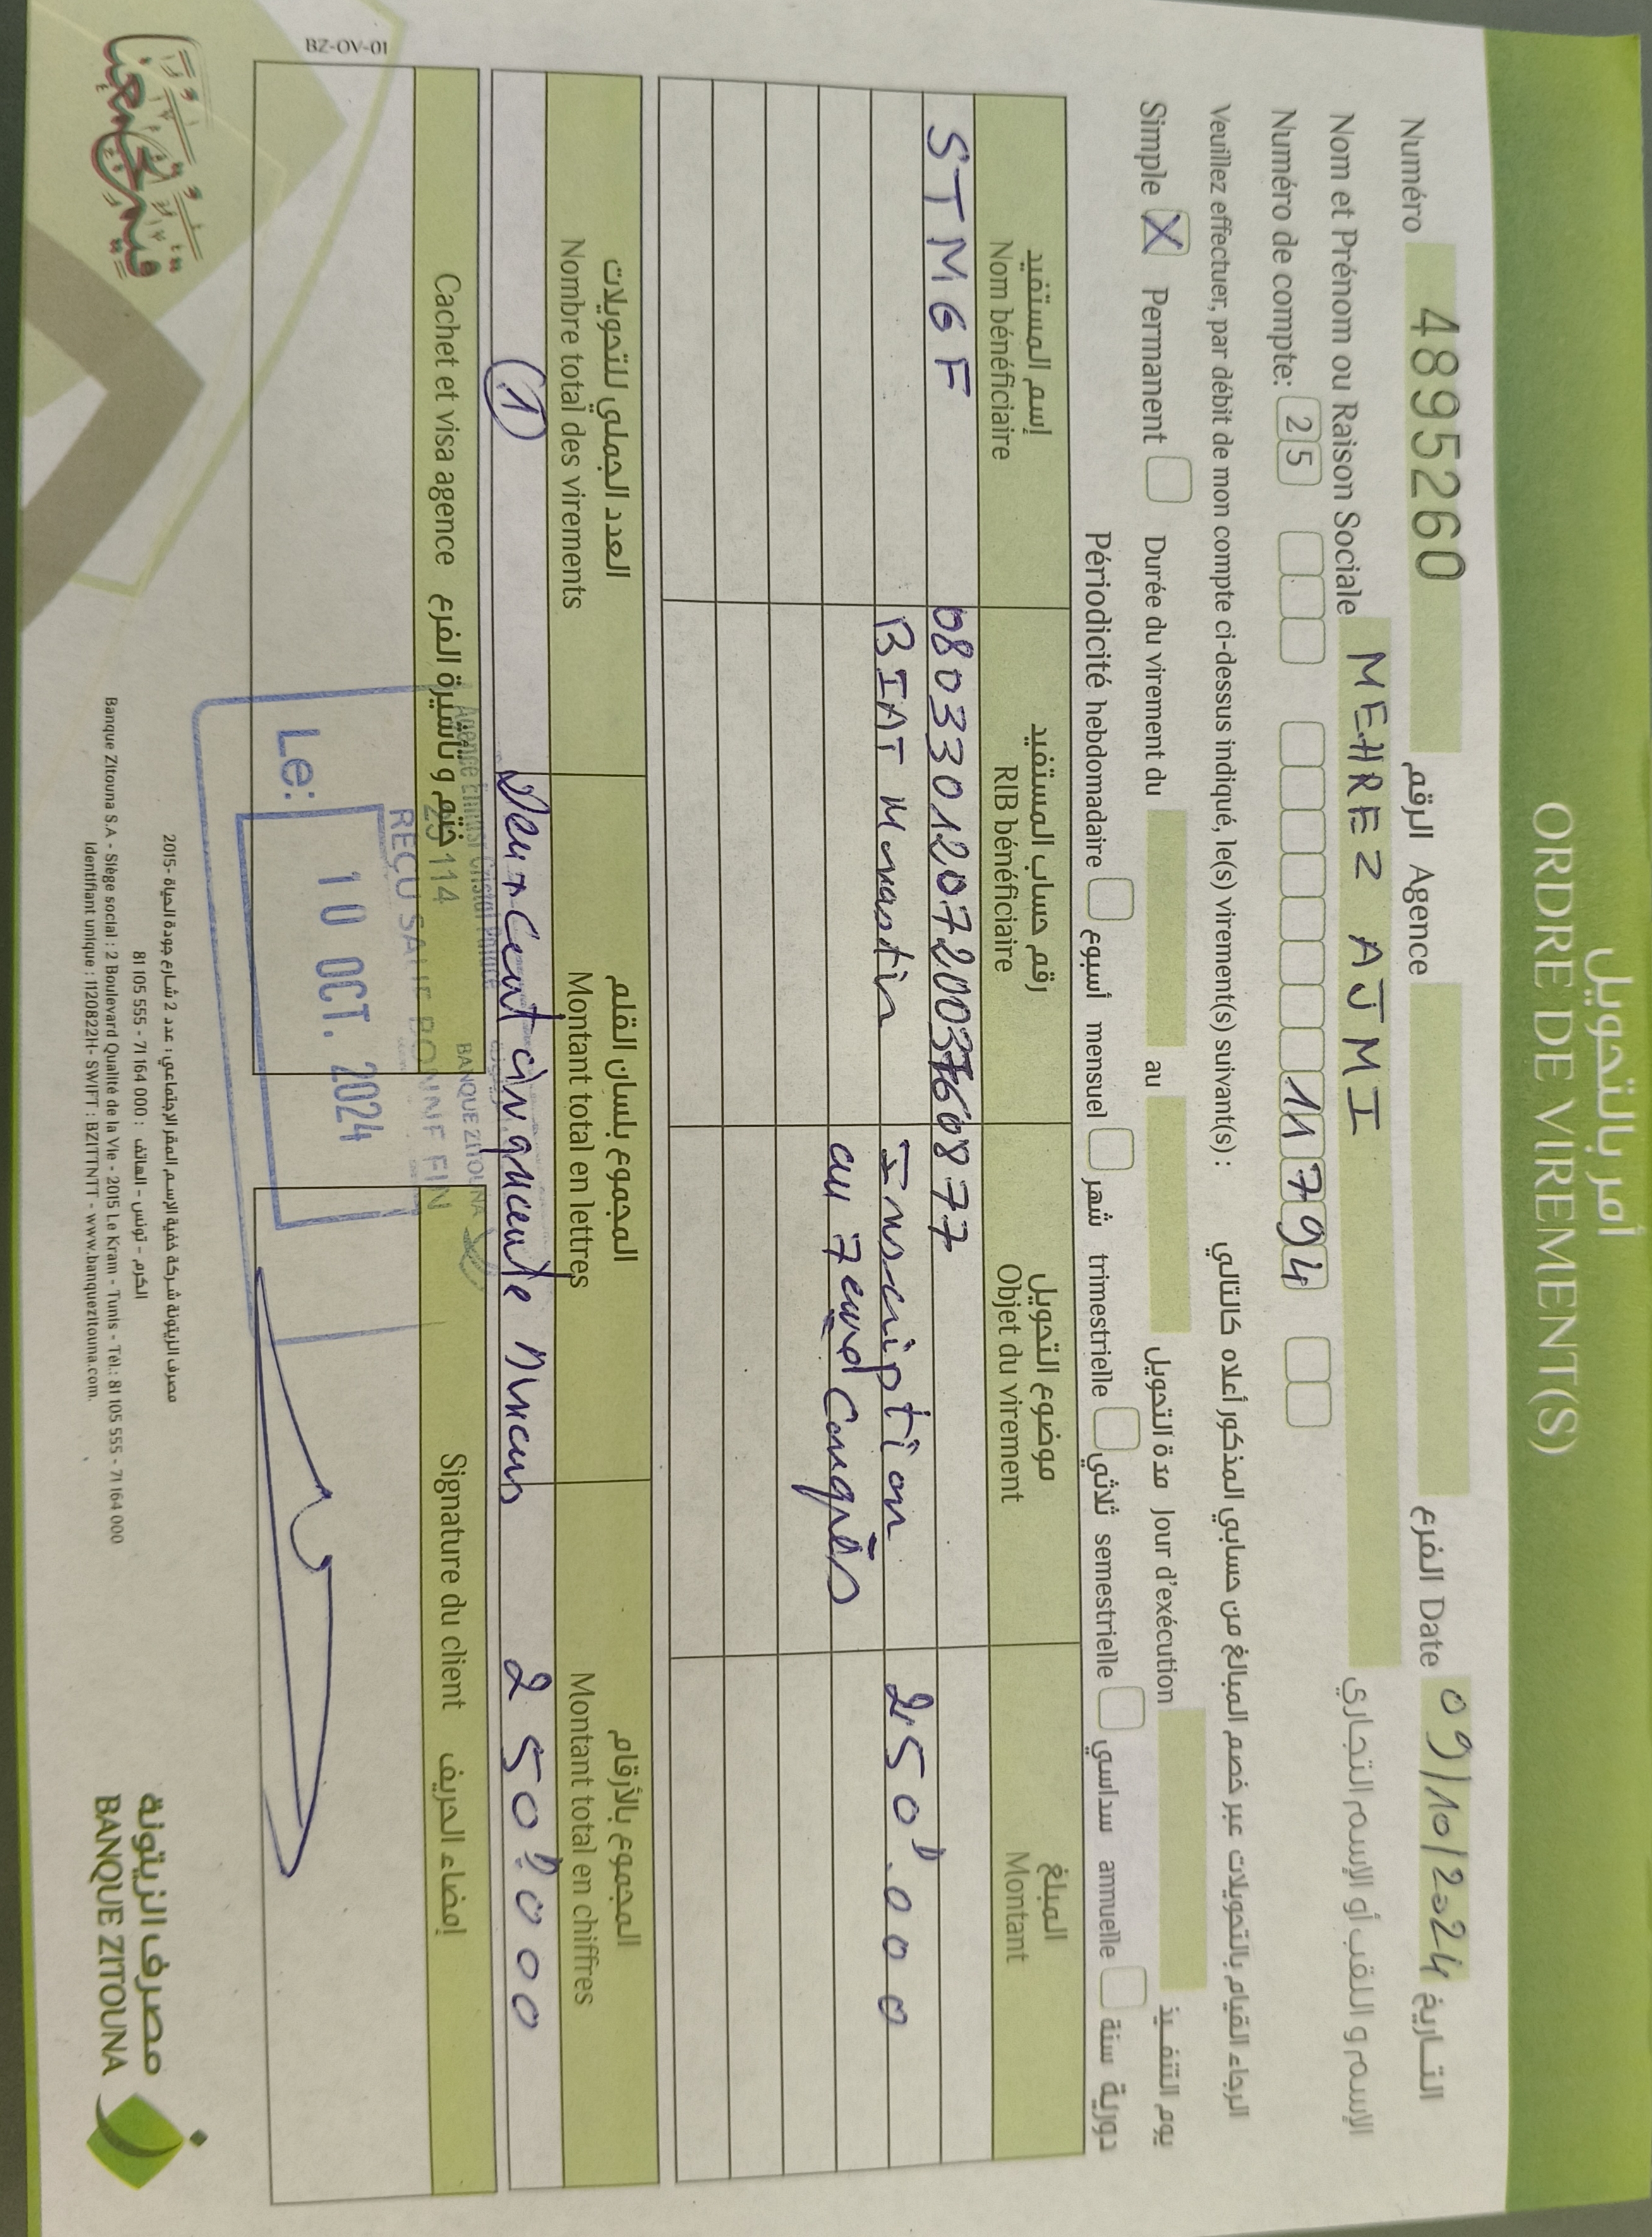 أمر بالتحويل
ORDRE DE VIREMENT(S)
Numéro 4895260 الرقم Agence الفرع Date 09/10/2024 التاريخ
Nom et Prénom ou Raison Sociale MEHREZ AJMI الإسم و اللقب أو الإسم التجاري
Numéro de compte: 25 11794
Veuillez effectuer, par débit de mon compte ci-dessus indiqué, le(s) virement(s) suivant(s) : الرجاء القيام بالتحويلات عبر خصم المبالغ من حسابي المذكور أعلاه كالتالي
Simple X Permanent Durée du virement du au مدة التحويل Jour d'exécution يوم التنفيذ
Périodicité hebdomadaire أسبوع mensuel شهر trimestrielle ثلاثي semestrielle سداسي annuelle سنة دورية
إسم المستفيد رقم حساب المستفيد موضوع التحويل المبلغ
Nom bénéficiaire RIB bénéficiaire Objet du virement Montant
STMGF 08033012072003760877
BIAT Monastir Inscription 250D.000
au 7eme Congrès
العدد الجملي للتحويلات المجموع بلسان القلم المجموع بالأرقام
Nombre total des virements Montant total en lettres Montant total en chiffres
1 Deux cent cinquante Dinars 250D.000
Cachet et visa agence ختم و تأشيرة الفرع Signature du client إمضاء الحريف
BANQUE ZITOUNA
114
REÇU SAUF BONNE FIN
Le: 10 OCT. 2024
BZ-OV-01
مصرف الزيتونة شركة خفية الإسم المقر الإجتماعي : عدد 2 شارع جودة الحياة -2015
الكرم - تونس - الهاتف : 81 105 555 - 71 164 000
Banque Zitouna S.A - Siège social : 2 Boulevard Qualité de la Vie - 2015 Le Kram - Tunis - Tél.: 81 105 555 - 71 164 000
Identifiant unique : 1120822H- SWIFT : BZITTNTT - www.banquezitouna.com.
مصرف الزيتونة
BANQUE ZITOUNA